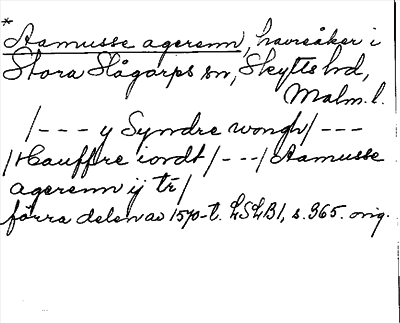 *
Aamusse agerenn, havreåker i
Stora Slågarps sn, Skytts hd,
Malm. l.
/--- y Syndre wongh/---
/Hauffre iordt/---/Aamusse
agerenn ij tr/
förra delen av 1570-t. LSLB1, s. 365. orig.